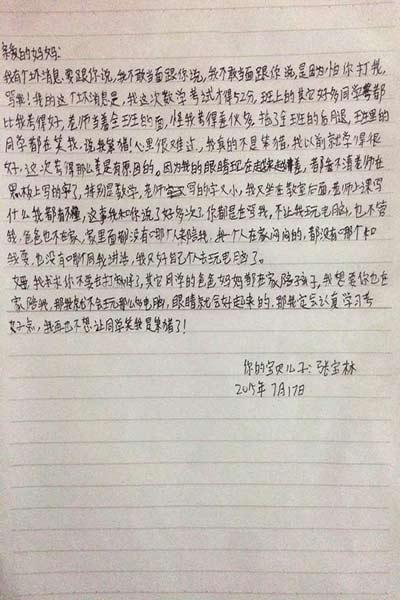 亲爱的妈妈:
我有个坏消息要跟你说,我不敢当面跟你说,我不敢当面跟你说,是因为怕你打我,
骂我!我的这个坏消息是,我这次数学考试才得52分,班上的其它好多同学都
比我考得好,老师当着全班的面,怪我考得差,拖了全班的后腿,班里的
同学都在笑我,说我笨猪!心里很难过,我真的不是笨猪,我以前就学得很
好,这次考得那么差是有原因的。因为我的眼睛现在越来越差,都看不清老师在
黑板上写的字了,特别是数学,老师写的字又小,我又坐在教室后面,老师上课写
什么我都看不懂,这事我和你说了好多次了,你都是在骂我,不让我玩电脑,也不管
我,爸爸也不在家,家里面都没有哪个来陪我,我一个人在家闷闷的,都没有哪个和
我耍,也没有哪个用我讲法,我只好自己个去玩电脑了。
妈妈,我求求你不要去打麻将了,其它同学的爸爸妈妈都在家陪孩子,我想要你也在
家陪我,那我就不会玩那么多电脑,眼睛就会好起来的,那我定会认真学习考
好点,我再也不想让同学笑我是笨猪了!
你的宝贝儿子:张宝林
2015年7月17日